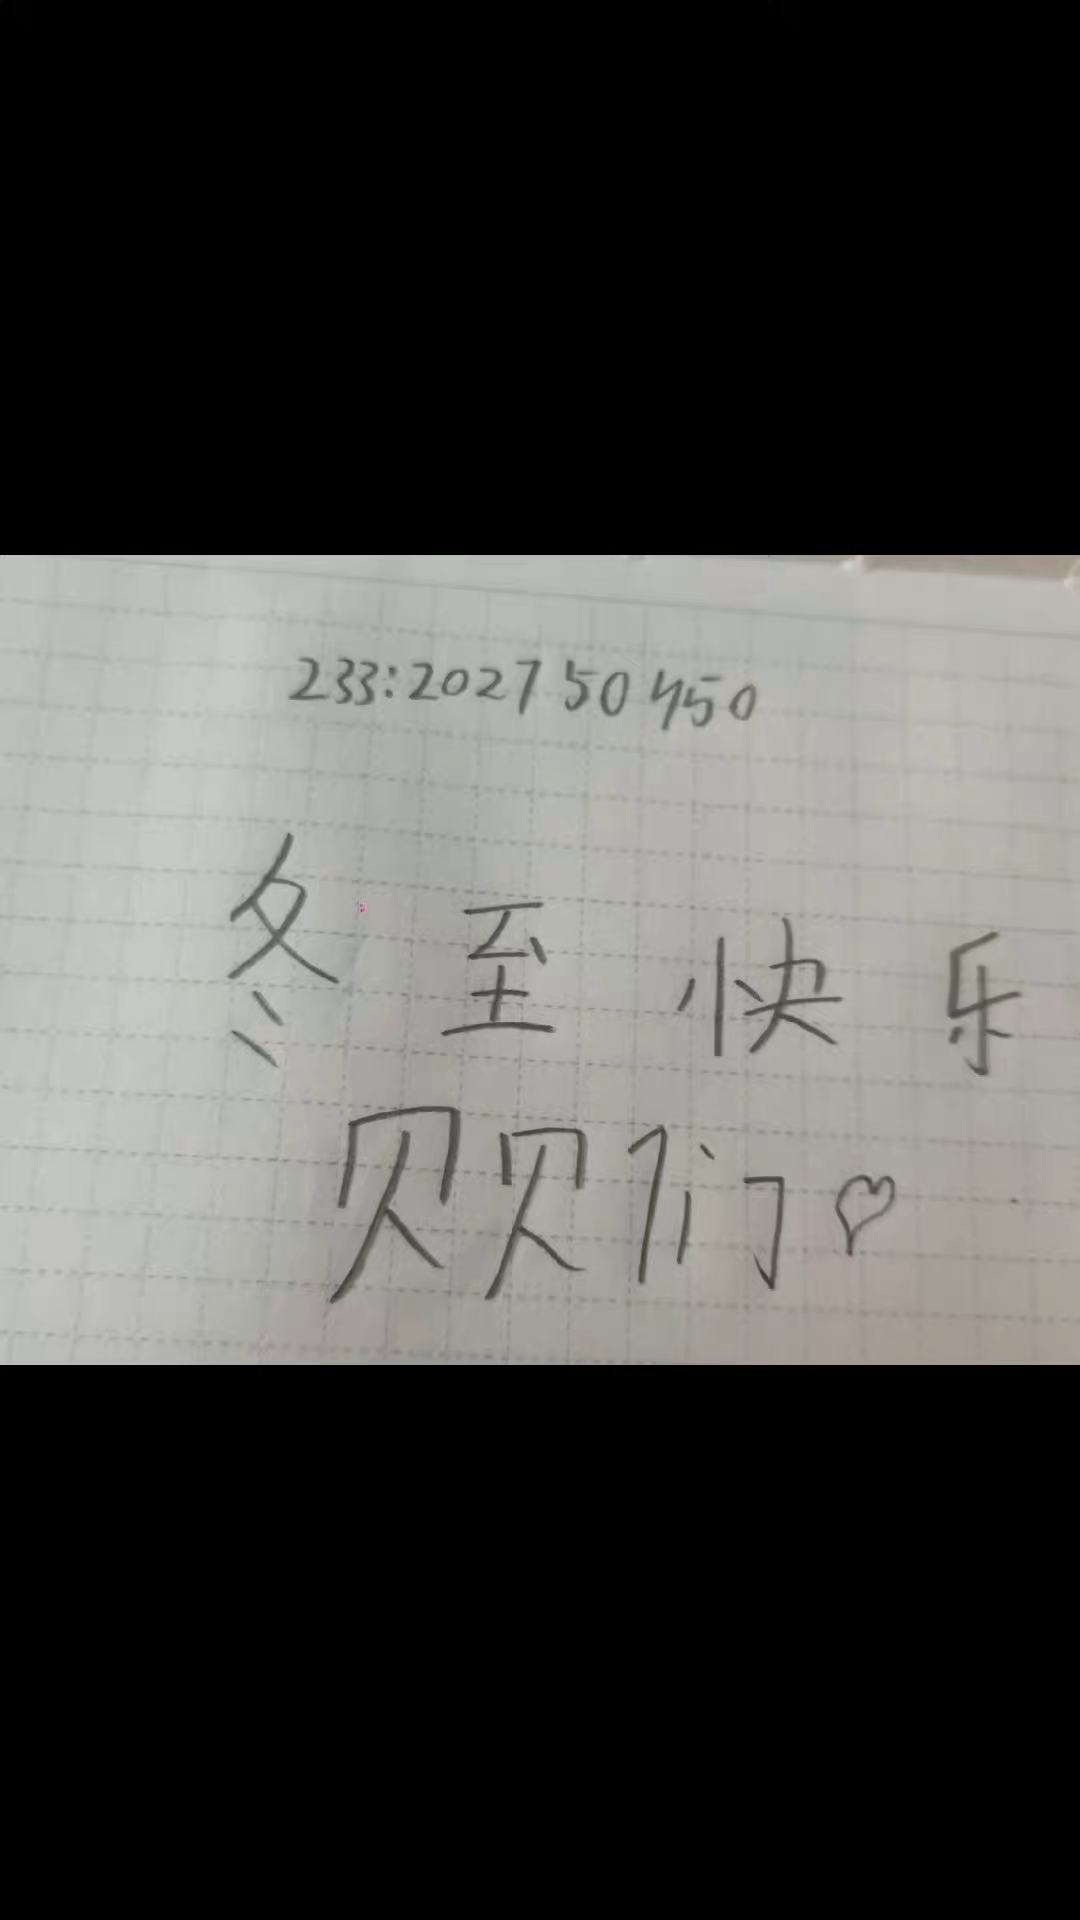 233:2027 50 450
冬至快乐
贝贝们♡